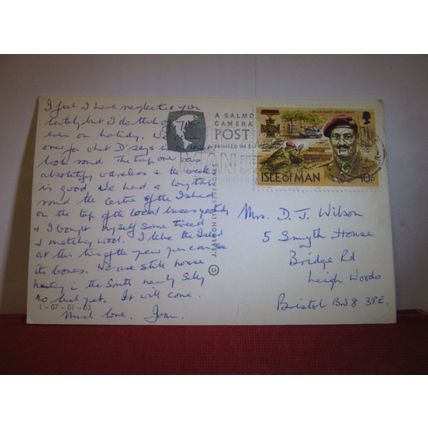 I feel I have neglected you
lately but I do think of you
even on holiday. We
over for what D. says is a
look round. The trip over was
absolutely waveless & the weather
is good. We had a long
round the centre of the Island
on the top of the local buses yesterday
& I bought myself some tweed
& matching wool. I like the Island
at this time of the year you can see
its bones. We are still house
hunting in the South nearly
no luck yet. It will come.
Much love. Joan.
1-07-01-01
A SALMO
CAMERA
POST
PRINTED IN
J. SALMON LTD SEVENOAKS
©
ISLE OF MAN
10p
Mrs. D. J. Wilson
5 Smyth House
Bridge Rd
Leigh Woods
Bristol BS8 3PE.